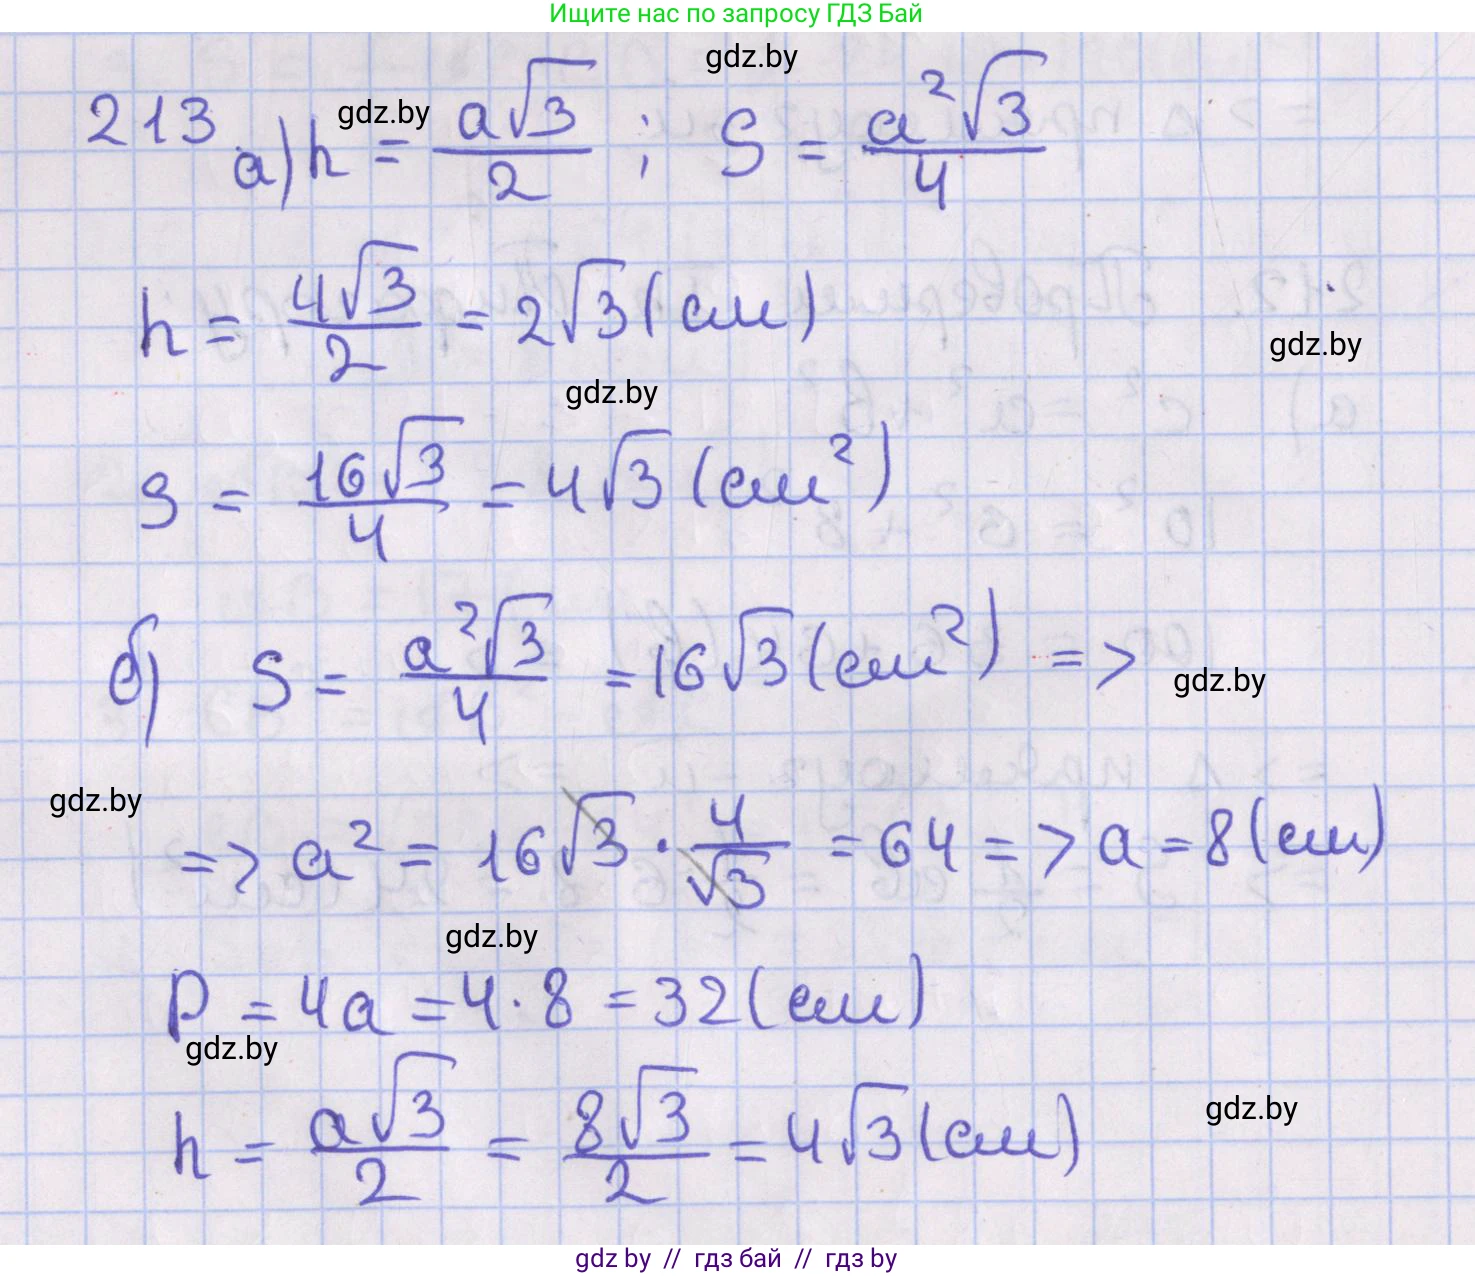 Ищите нас по запросу ГДЗ Бай
gdz.by
213 а) h = a√3/2 ; S = a²√3/4
gdz.by
h = 4√3/2 = 2√3 (см)
gdz.by
gdz.by
S = 16√3/4 = 4√3 (см²)
б) S = a²√3/4 = 16√3 (см²) =>
gdz.by
gdz.by
=> a² = 16√3 · 4/√3 = 64 => a = 8 (см)
gdz.by
P = 4a = 4 · 8 = 32 (см)
gdz.by
h = a√3/2 = 8√3/2 = 4√3 (см)
gdz.by
gdz by // гдз бай // гдз by